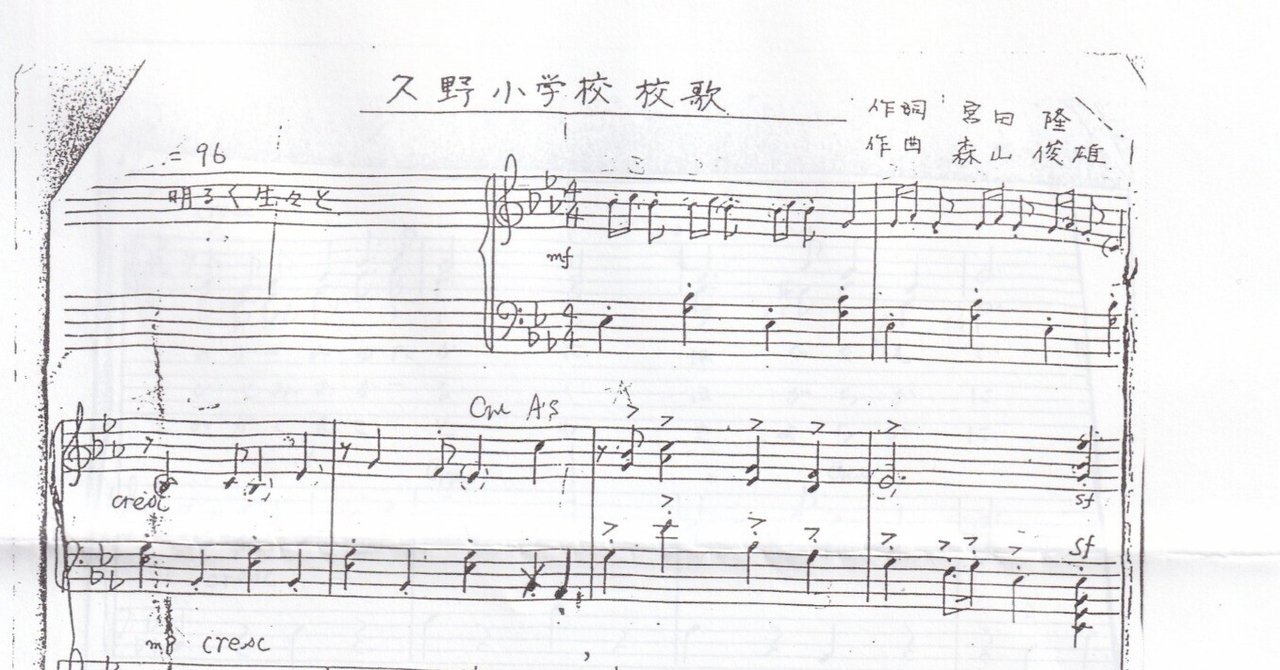 久野小学校 校歌
作詞 宮田 隆
作曲 森山 俊雄
= 96
明るく生々と
mf
cresc
sf
sf
mp cresc